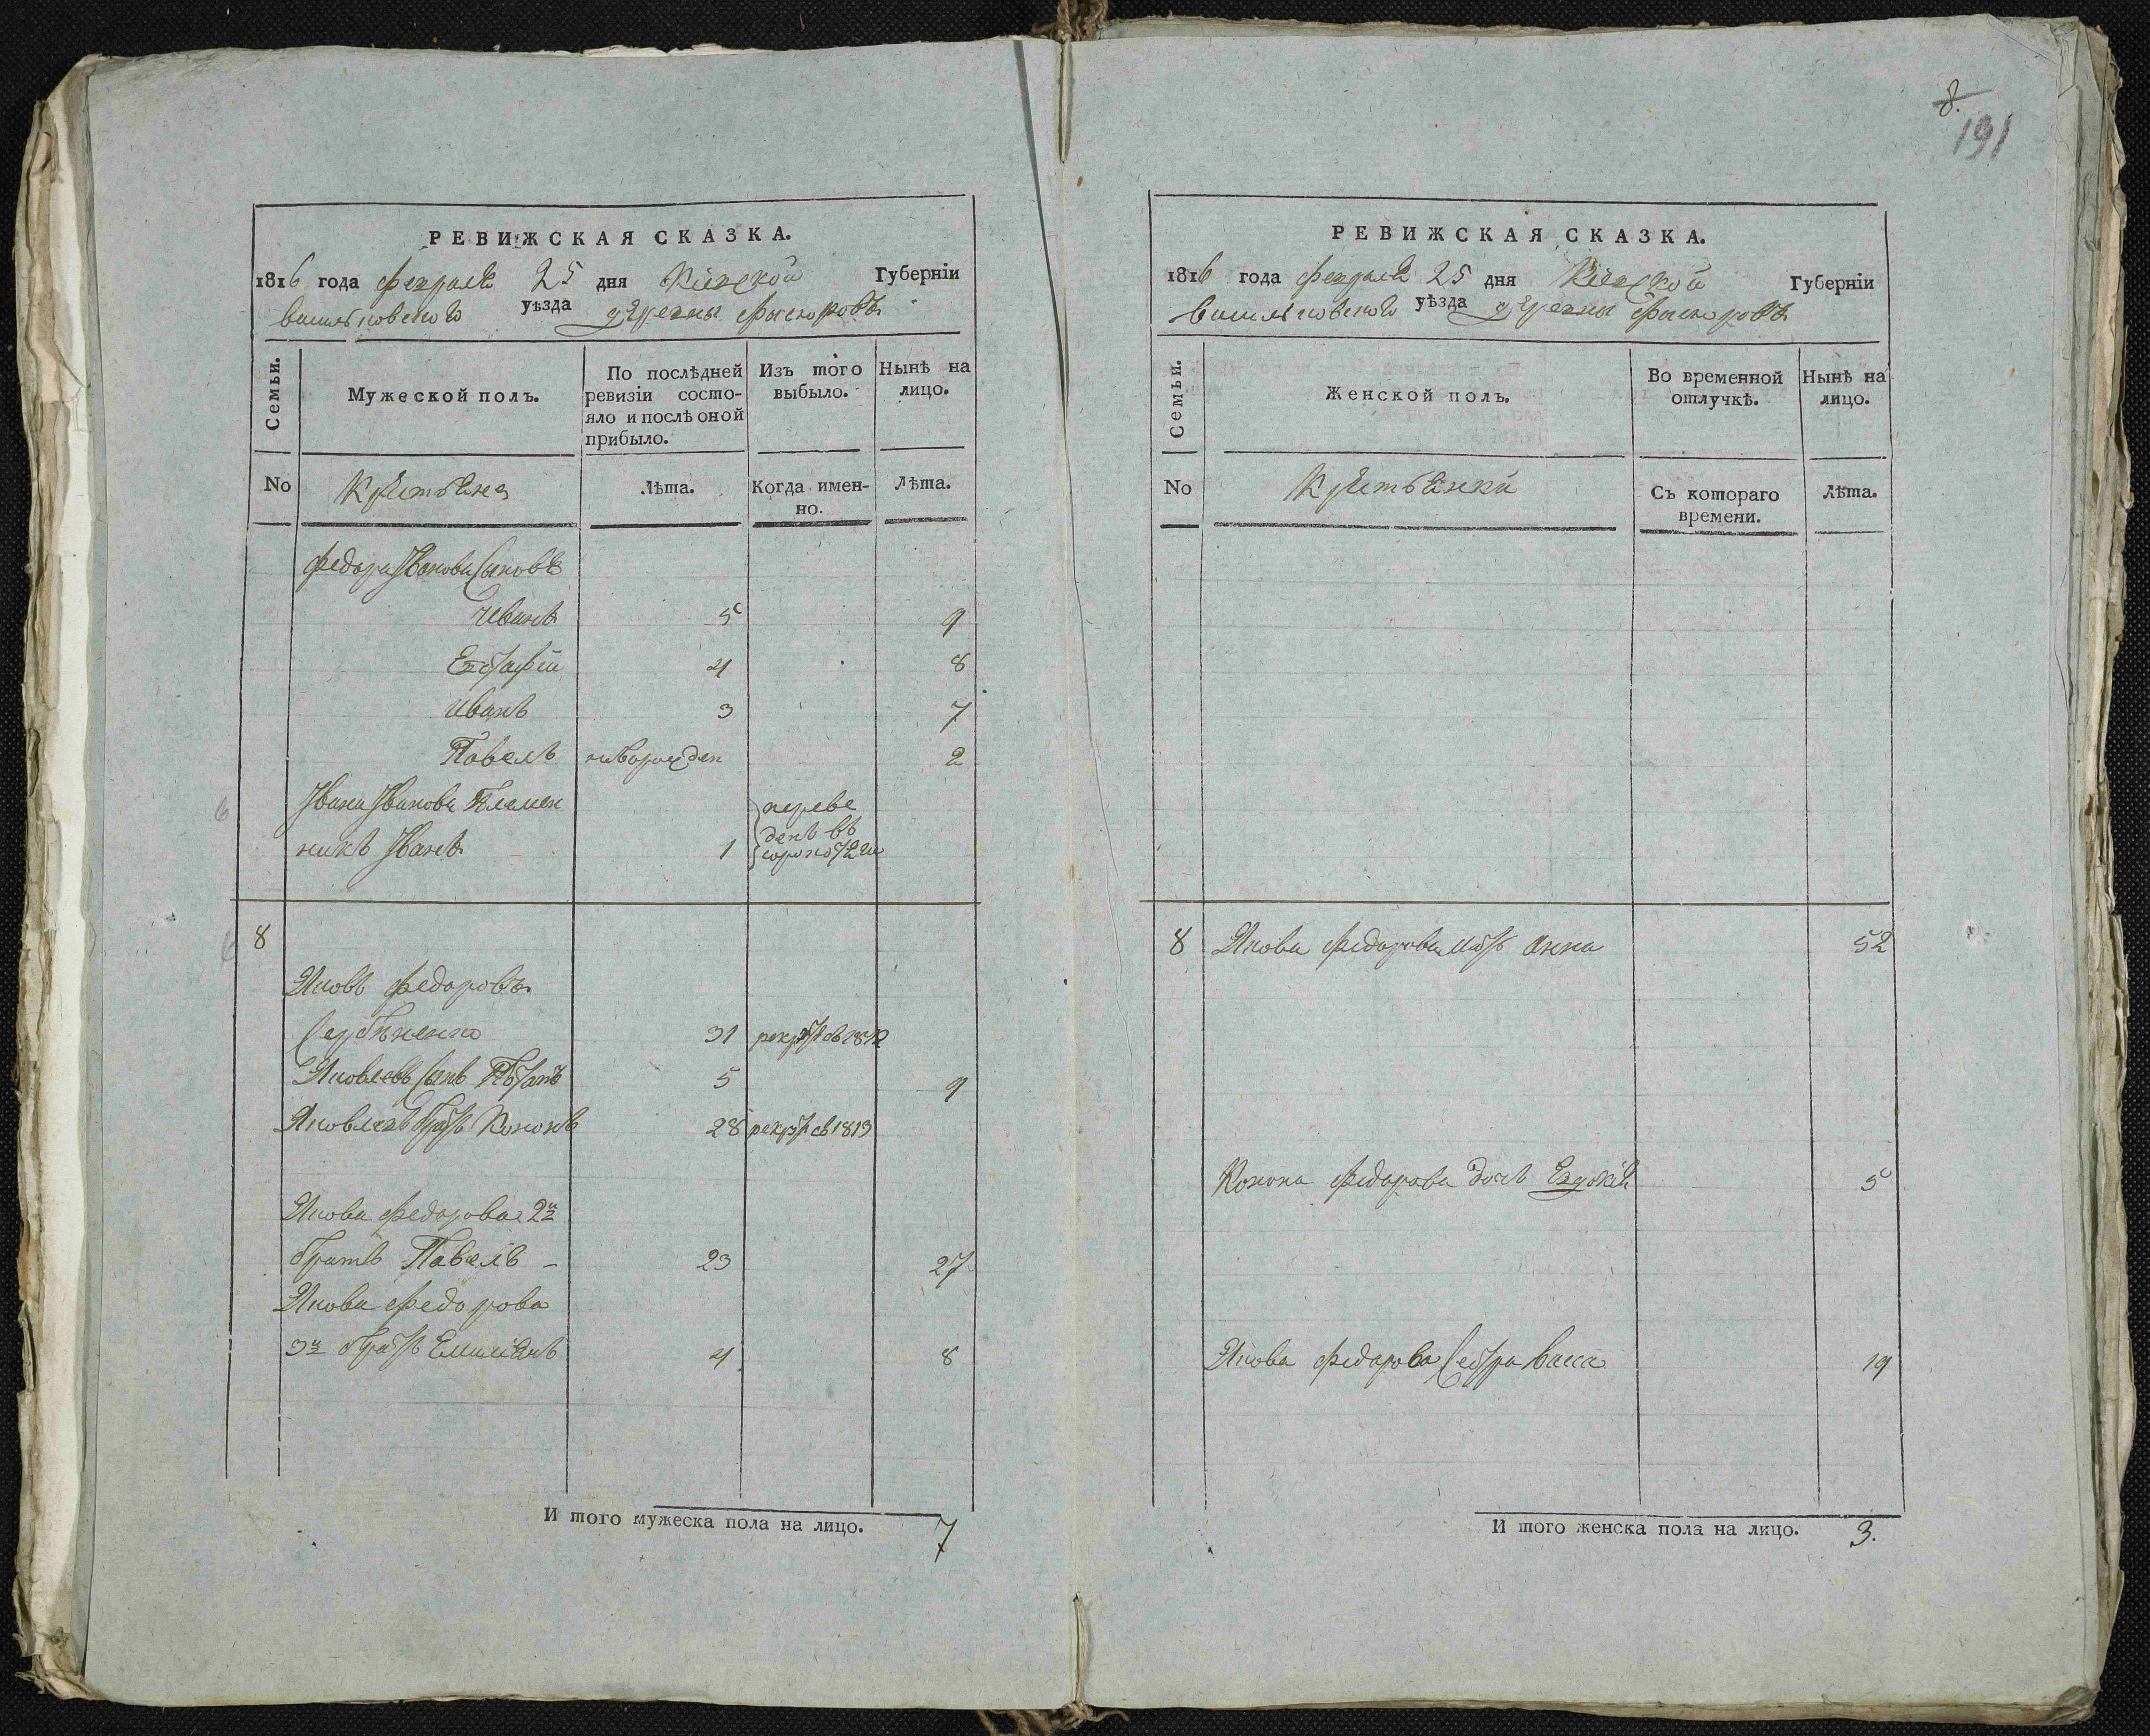 РЕВИЖСКАЯ СКАЗКА.
1816 года февраля 25 дня Кіевской Губерніи
васильковского уѣзда деревни
Семьи.
Мужеской полъ.
По послѣдней ревизіи состо-
яло и послѣ оной
прибыло.
Изъ того
выбыло.
Нынѣ на
лицо.
No
Крестьяне
Лѣта.
Когда имен-
но.
Лѣта.
Федора Іванова Сыновъя
Иванъ 5 9
Евстафій 4 8
Иванъ 3 7
Павелъ новорожден 2
Івана Іванова Племен
никъ Іванъ 1 переве
денъ въ
8
Яковъ Федоровъ
31 рекрутъ въ 1812
Яковлевъ Сынъ 5 9
Яковлевъ братъ Кононъ 28 рекрутъ въ 1813
Якова Федорова 2й
братъ Павелъ - 23 27
Якова Федорова
3й братъ Емилиянъ 4 8
И того мужеска пола на лицо. 7
8.
191
РЕВИЖСКАЯ СКАЗКА.
1816 года февраля 25 дня Кіевской Губерніи
васильковского уѣзда деревни
Семьи.
Женской полъ.
Во временной
отлучкѣ.
Нынѣ на
лицо.
No
Крестьянки
Съ котораго
времени.
Лѣта.
8 Якова Федорова мать Анна 52
Конона Федорова дочь Евдокия 5
Якова Федорова Сестра Васса 19
И того женска пола на лицо. 3.